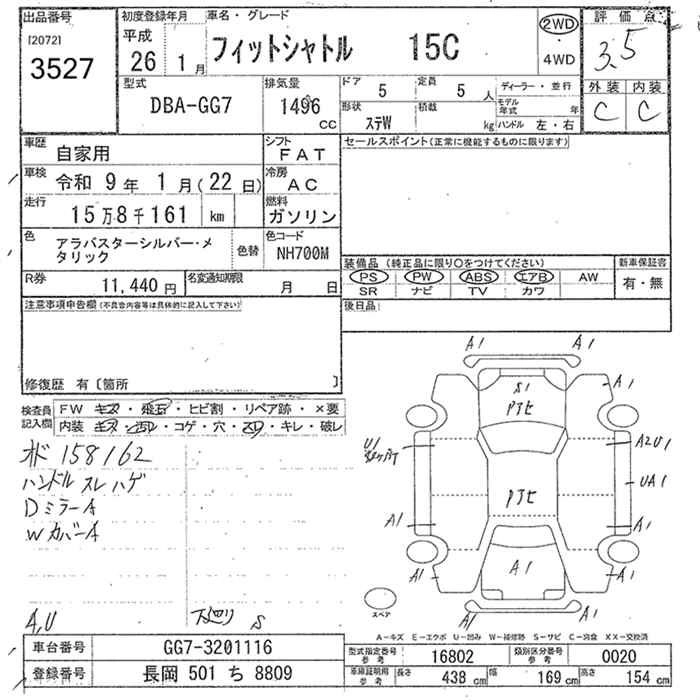 出品番号 初度登録年月 車名・グレード 2WD 評価点
[2072] 平成
3527 26 1月 フィットシャトル 15C ・4WD 3.5
型式 排気量 ドア 定員 ディーラー・並行 外装 内装
DBA-GG7 1496 cc 5 5人 モデル年式 年 C C
形状 積載
ステW kg ハンドル 左・右
車歴 自家用 シフト FAT セールスポイント(正常に機能するものに限ります)
車検 令和 9年 1月(22日) 冷房 AC
走行 15万8千161 km 燃料 ガソリン
色 アラバスターシルバー・メタリック 色替 色コード NH700M
装備品(純正品に限り○をつけてください) 新車保証書
PS PW ABS エアB AW 有・無
SR ナビ TV カワ
R券 11,440円 名変通知期限 月 日
後日品
注意事項申告欄(不具合内容等は具体的に記入して下さい)
修復歴 有〔箇所 〕
検査員記入欄 FW キズ・飛石・ヒビ割・リペア跡・×要
内装 キズ・汚れ・コゲ・穴・スレ・キレ・破レ
158162
ハンドル スレ ハゲ
DミラーA
WカバーA
A,U 下廻り S
A1 A1
S1 A1
U1 A2U1
UA1
A1 A1
A1
A1 A1
A1 A1
スペア
A-キズ E-エクボ U-凹み W-補修跡 S-サビ C-腐食 XX-交換済
車台番号 GG7-3201116
登録番号 長岡 501 ち 8809
型式指定番号 参考 16802 類別区分番号 参考 0020
車庫証明用 参考 長さ 438 cm 幅 169 cm 高さ 154 cm